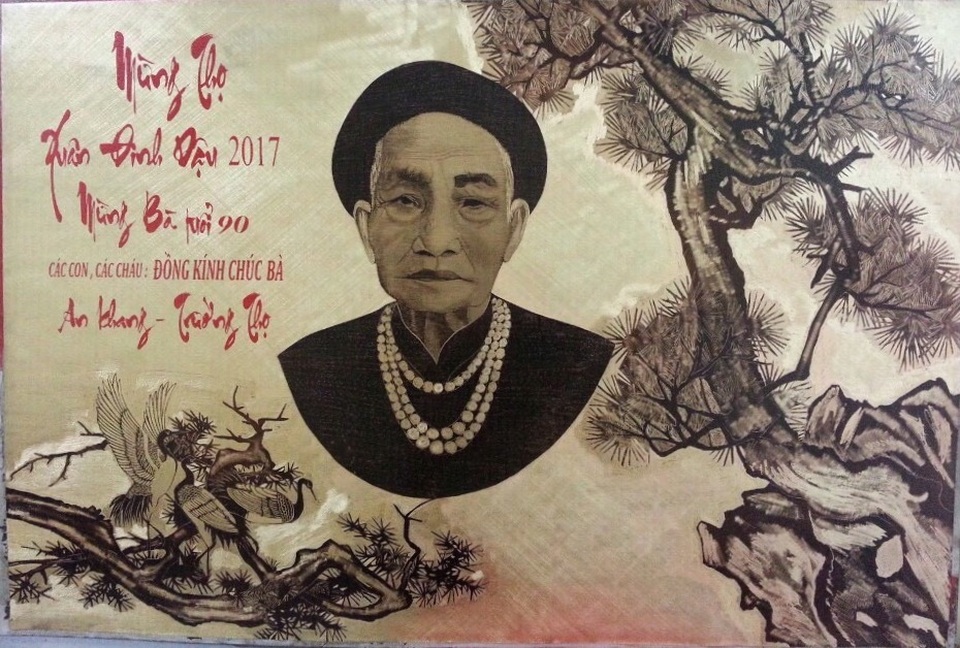 Mừng Thọ
Xuân Đinh Dậu 2017
Mừng Bà tuổi 90
CÁC CON, CÁC CHÁU: ĐỒNG KÍNH CHÚC BÀ
An Khang - Trường Thọ